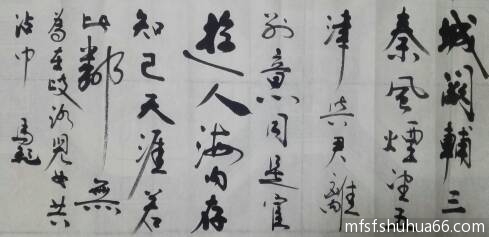 城闕輔三
秦風煙望五
津與君離
別意同是宦
遊人海內存
知己天涯若
比鄰無
為在歧路兒女共
沾巾
mfsf.shuhua66.com